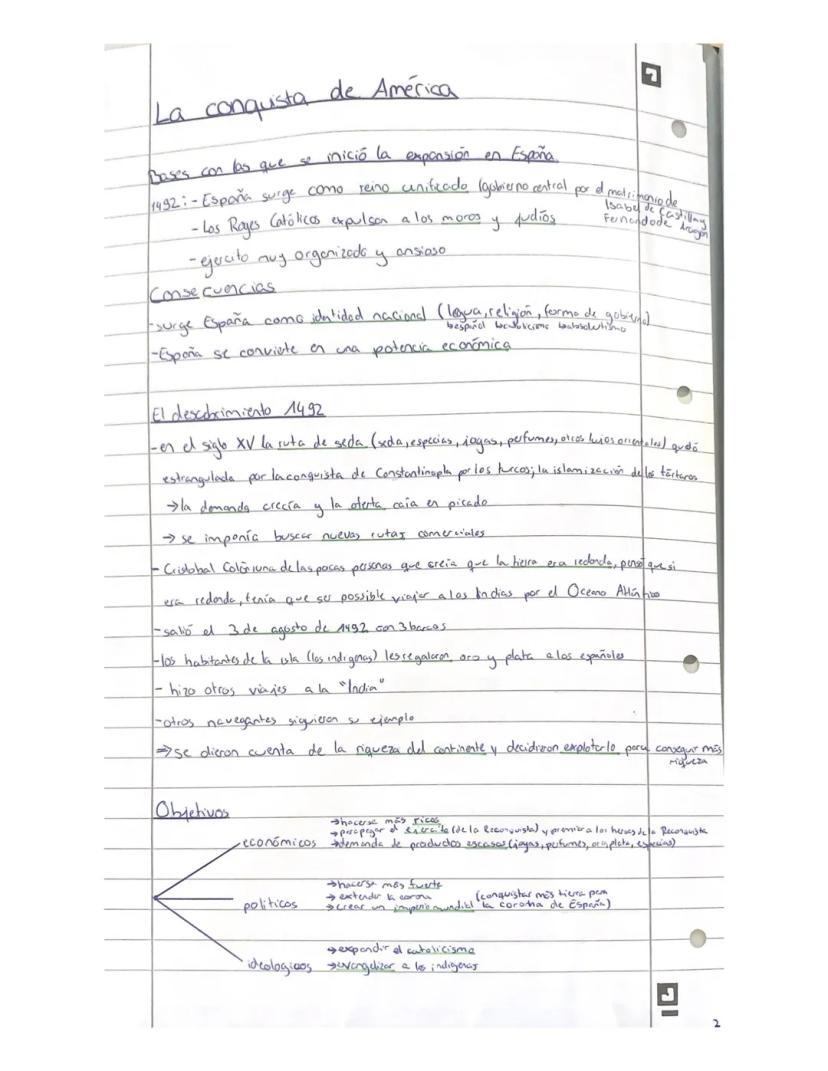 La conquista de América
Bases con las que se inició la expansión en España
1492: - España surge como reino unificado (gobierno central por el matrimonio de
Isabel de Castilla y
Fernando de Aragón
- Los Reyes Católicos expulsan a los moros y judíos
- ejercito muy organizado y ansioso
Consecuencias
- surge España como identidad nacional (legua, religión, forma de gobierno)
español catolicismo absolutismo
- España se convierte en una potencia económica
El descubrimiento 1492
- en el siglo XV la ruta de seda (seda, especias, joyas, perfumes, otros lujos orientales) quedó
estrangulada por la conquista de Constantinopla por los turcos; la islamización de los tártaros
→ la demanda crecía y la oferta caía en picado
→ se imponía buscar nuevas rutas comerciales
- Cristobal Colón: una de las pocas personas que creia que la tierra era redonda, pensó que si
era redonda, tenía que ser possible viajar a las Indias por el Oceano Atlántico
- salió el 3 de agosto de 1492 con 3 barcos
- los habitantes de la isla (los indigenas) les regalaron oro y plata a los españoles
- hizo otros viajes a la "India"
- otros navegantes siguieron su ejemplo
⇒ se dieron cuenta de la riqueza del continente y decidieron explotarlo para conseguir más
riqueza
Objetivos
económicos
→ hacerse más ricos
→ pagar el ejercito (de la Reconquista) y premiar a los heroes de la Reconquista
→ demanda de productos escasos (joyas, perfumes, oro, plata, especias)
políticos
→ hacerse más fuerte
→ extender la corona (conquistar más tierra para
→ crear un imperio mundial la corona de España)
ideologicos
→ expandir el catolicismo
→ evangelizar a los indigenas
2